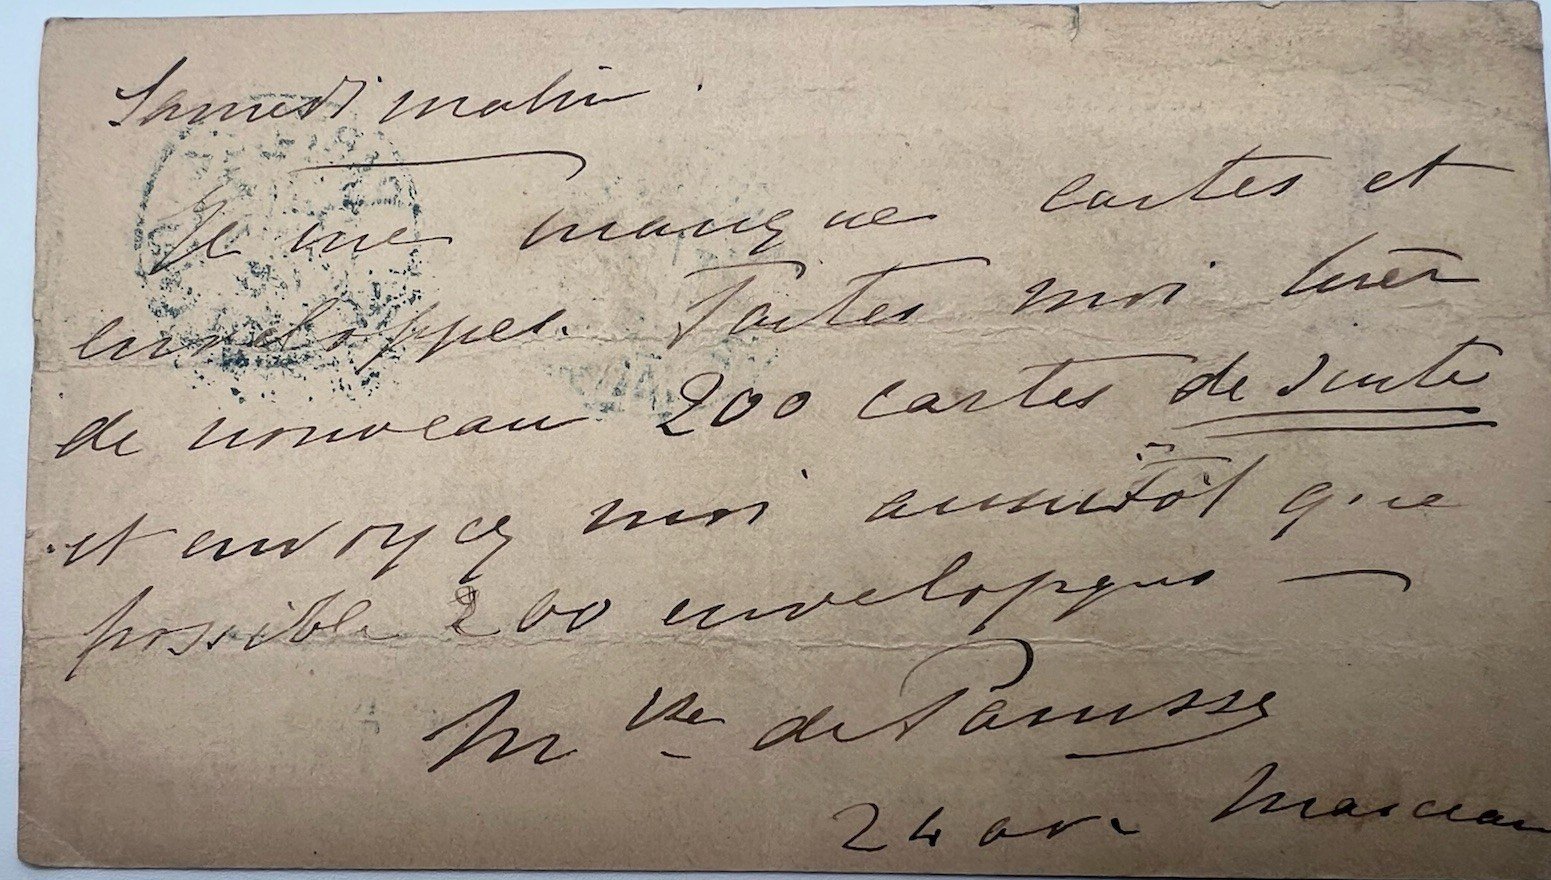 Samedi matin.
Je me manque cartes et
enveloppes. Faites moi tirer
de nouveau 200 cartes de suite
et envoyez moi aussitôt que
possible 200 enveloppes —
Mise de Panisse
24 av. Marceau